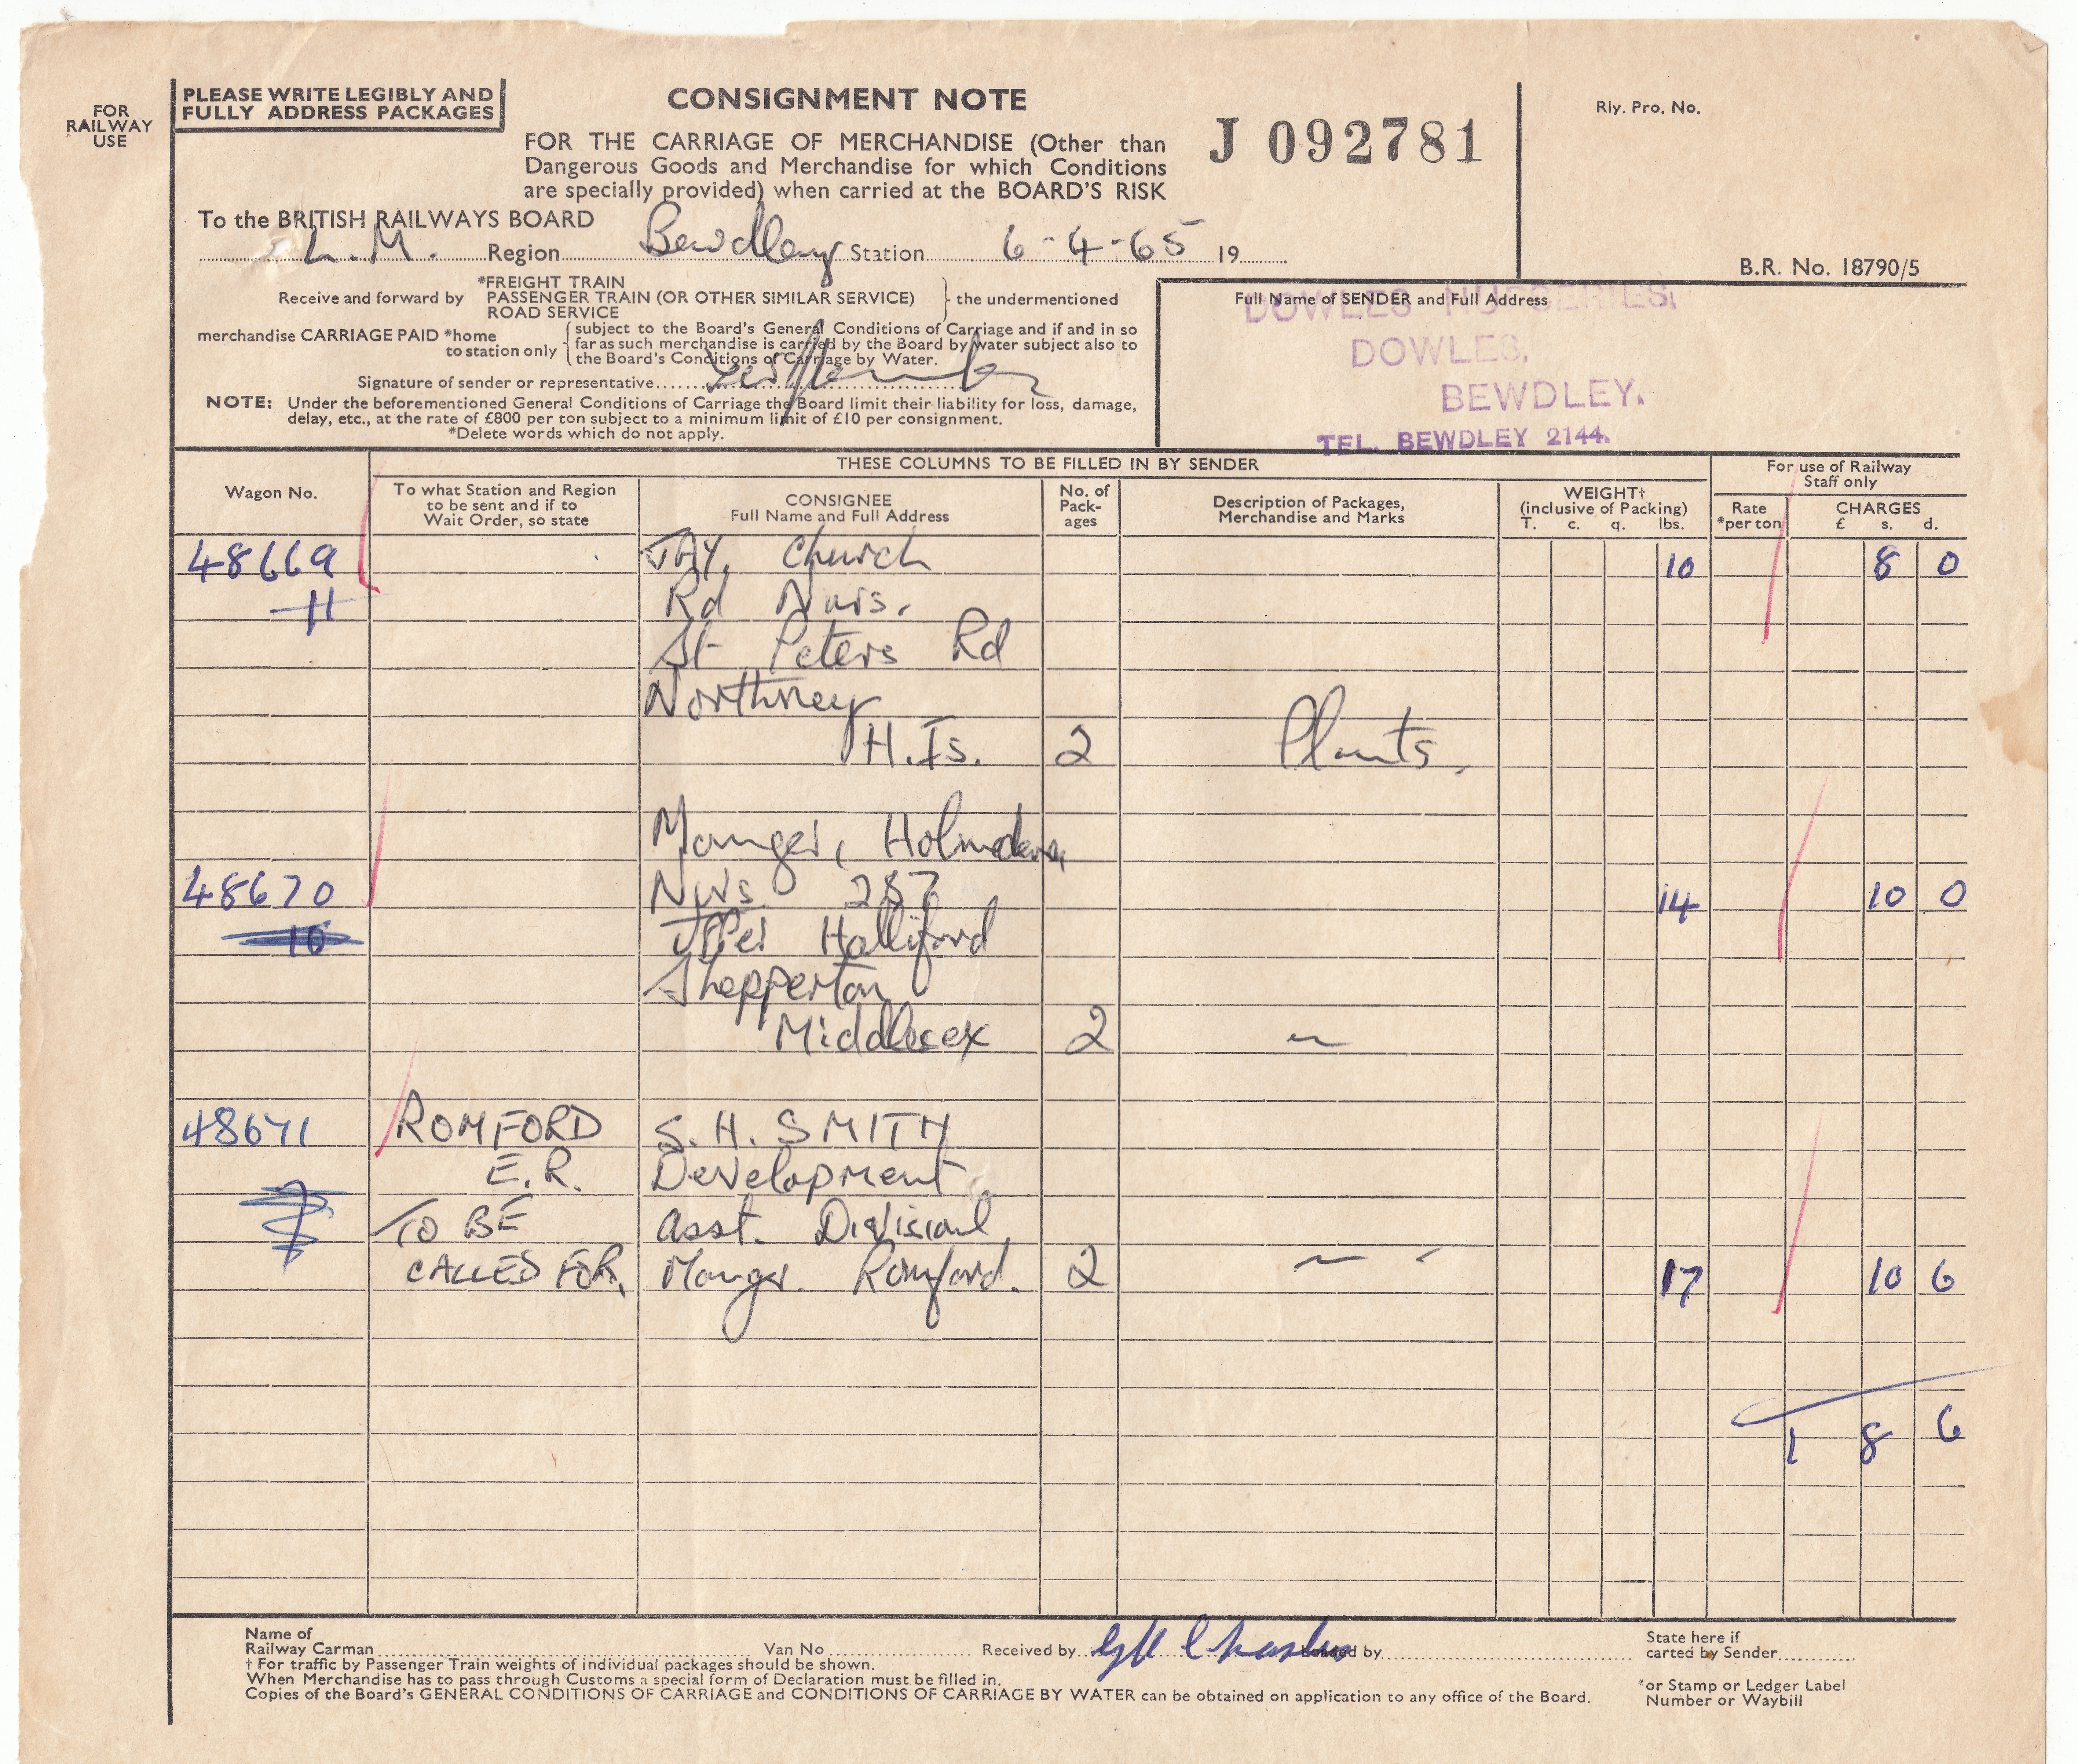 FOR
RAILWAY
USE
PLEASE WRITE LEGIBLY AND
FULLY ADDRESS PACKAGES
CONSIGNMENT NOTE
FOR THE CARRIAGE OF MERCHANDISE (Other than
Dangerous Goods and Merchandise for which Conditions
are specially provided) when carried at the BOARD'S RISK
J 092781
Rly. Pro. No.
B.R. No. 18790/5
To the BRITISH RAILWAYS BOARD
L.M. Region Bewdley Station 6-4-65 19
Receive and forward by
*FREIGHT TRAIN
PASSENGER TRAIN (OR OTHER SIMILAR SERVICE)
ROAD SERVICE
the undermentioned
merchandise CARRIAGE PAID *home
to station only
subject to the Board's General Conditions of Carriage and if and in so
far as such merchandise is carried by the Board by water subject also to
the Board's Conditions of Carriage by Water.
Signature of sender or representative
NOTE: Under the beforementioned General Conditions of Carriage the Board limit their liability for loss, damage,
delay, etc., at the rate of £800 per ton subject to a minimum limit of £10 per consignment.
*Delete words which do not apply.
Full Name of SENDER and Full Address
DOWLES NURSERIES,
DOWLES,
BEWDLEY.
TEL. BEWDLEY 2144.
THESE COLUMNS TO BE FILLED IN BY SENDER
For use of Railway
Staff only
Wagon No.
To what Station and Region
to be sent and if to
Wait Order, so state
CONSIGNEE
Full Name and Full Address
No. of
Pack-
ages
Description of Packages,
Merchandise and Marks
WEIGHT†
(inclusive of Packing)
T. c. q. lbs.
Rate
*per ton
CHARGES
£ s. d.
48669 JAY, Church 10 8 0
H Rd Nurs.
St Peters Rd
Northney
H.Is. 2 Plants.
Manger, Holmdene
48670 Nurs 287 14 10 0
Upper Halliford
Shepperton
Middlesex 2 "
48671 ROMFORD S.H. SMITH
E.R. Development
TO BE Asst. Divisional
CALLED FOR, Mangr. Romford. 2 " 17 10 6
1 8 6
Name of
Railway Carman
Van No
Received by
Loaded by
State here if
carted by Sender
† For traffic by Passenger Train weights of individual packages should be shown.
When Merchandise has to pass through Customs a special form of Declaration must be filled in.
Copies of the Board's GENERAL CONDITIONS OF CARRIAGE and CONDITIONS OF CARRIAGE BY WATER can be obtained on application to any office of the Board.
*or Stamp or Ledger Label
Number or Waybill